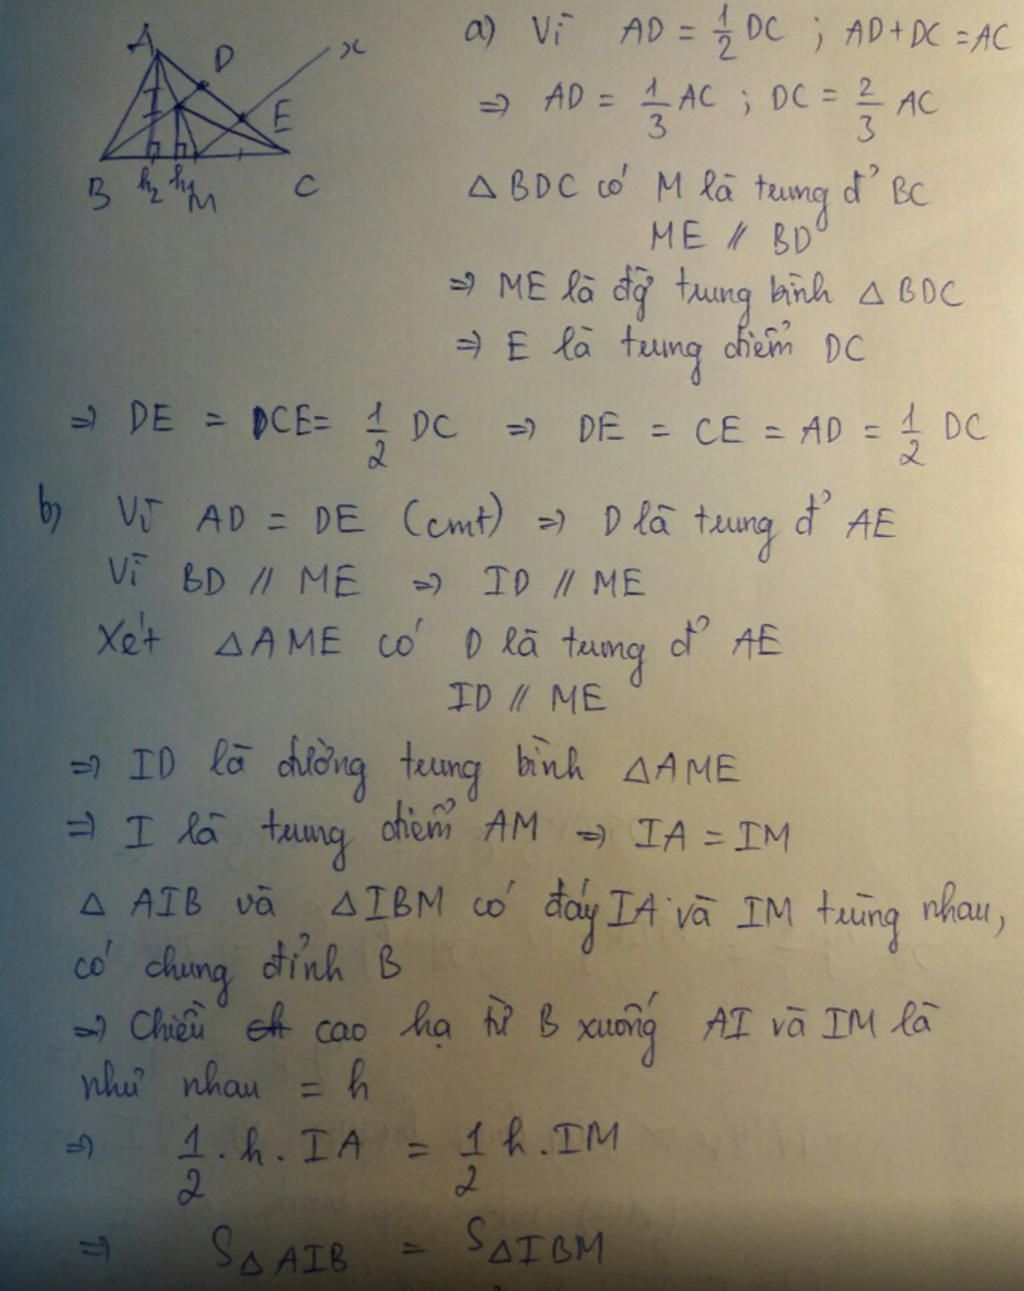 A
D
x
E
B
h₂
h₁
M
C
a) Vì AD = 1/2 DC ; AD + DC = AC
=> AD = 1/3 AC ; DC = 2/3 AC
△ BDC có M là trung đ' BC
ME // BD
=> ME là đg trung bình △ BDC
=> E là trung điểm DC
=> DE = CE = 1/2 DC => DE = CE = AD = 1/2 DC
b) Vì AD = DE (cmt) => D là trung đ' AE
Vì BD // ME => ID // ME
Xét △AME có D là trung đ' AE
ID // ME
=> ID là đường trung bình △AME
=> I là trung điểm AM => IA = IM
△ AIB và △IBM có đáy IA và IM trùng nhau,
có chung đỉnh B
=> Chiều cao hạ từ B xuống AI và IM là
như nhau = h
=> 1/2 . h . IA = 1/2 h . IM
=> S△AIB = S△IBM